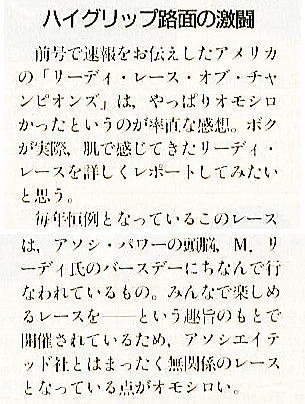 ハイグリップ路面の激闘
前号で速報をお伝えしたアメリカ
の「リーディ・レース・オブ・チャ
ンピオンズ」は、やっぱりオモシロ
かったというのが率直な感想。ボク
が実際、肌で感じてきたリーディ・
レースを詳しくレポートしてみたい
と思う。
毎年恒例となっているこのレース
は、アソシ・パワーの頭脳、M．リ
ーディ氏のバースデーにちなんで行
なわれているもの。みんなで楽しめ
るレースを――という趣旨のもとで
開催されているため、アソシエイテ
ッド社とはまったく無関係のレース
となっている点がオモシロい。